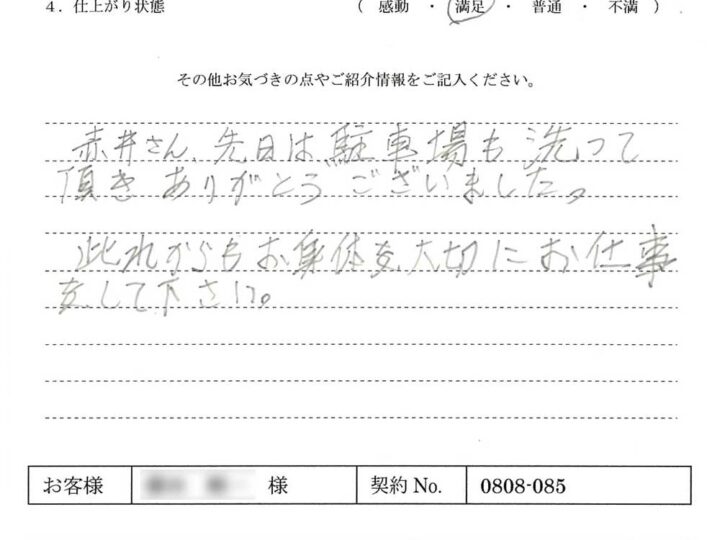 4．仕上がり状態 （ 感動 ・ 満足 ・ 普通 ・ 不満 ）
その他お気づきの点やご紹介情報をご記入ください。
赤井さん、先日は駐車場も洗って
頂きありがとうございました。
此れからもお身体を大切にお仕事
をして下さい。
お客様 様 契約 No. 0808-085